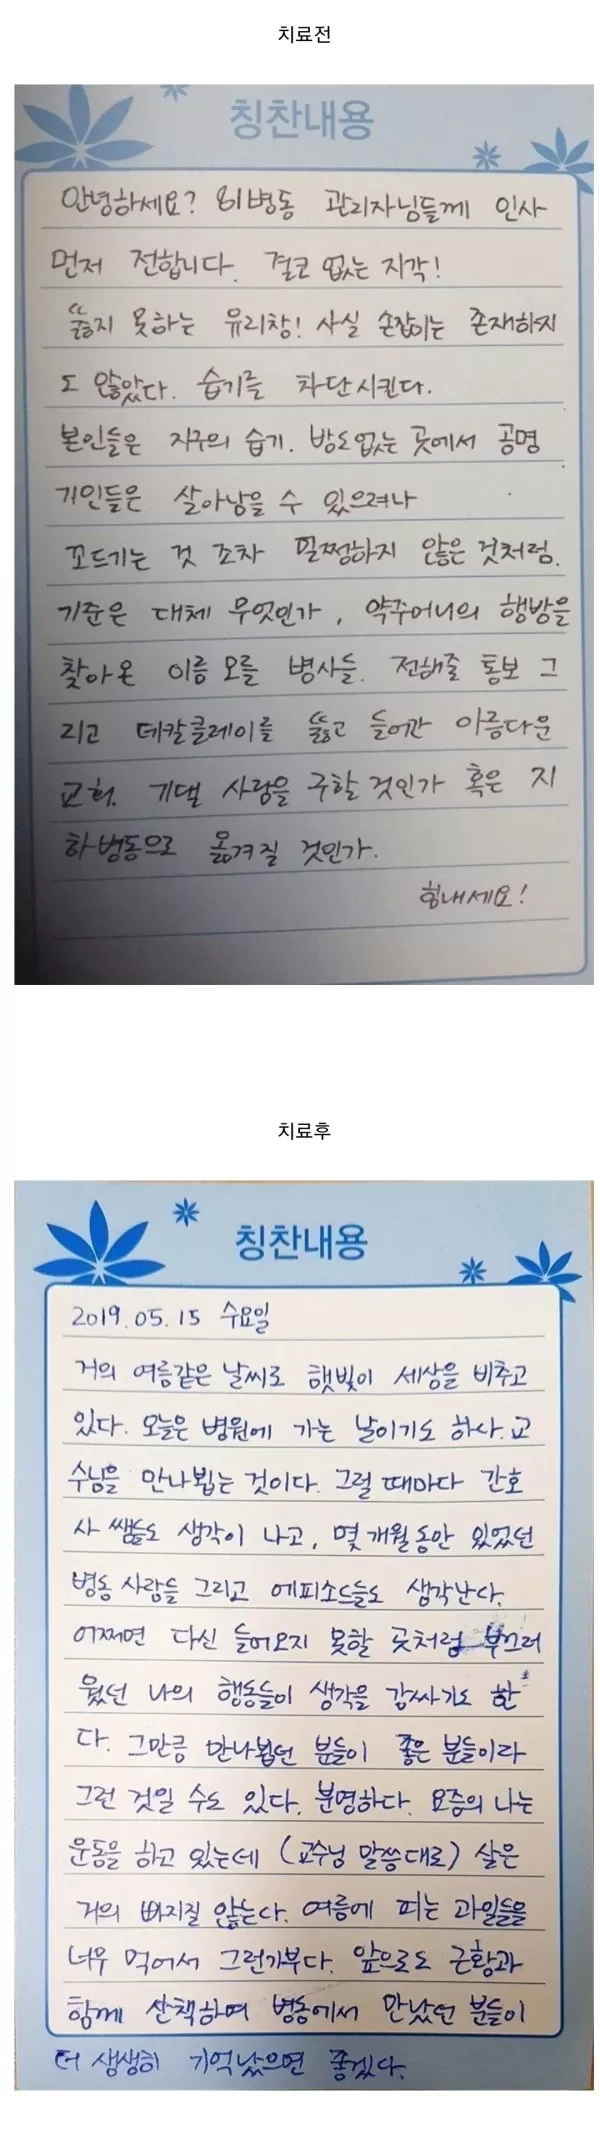 치료전
칭찬내용
안녕하세요? 81병동 관리자님들께 인사
먼저 전합니다. 결코 없는 지각!
"뚫지 못하는 유리창! 사실 손잡이는 존재하지
도 않았다. 습기를 차단시킨다.
본인들은 지구의 습기. 방도없는 곳에서 공명
기인들은 살아남을 수 있으려나
꼬드기는 것 조차 멀쩡하지 않은 것처럼.
기준은 대체 무엇인가, 약주머니의 행방을
찾아온 이름모를 병사들. 전해줄 통보 그
리고 데칼클레이를 뚫고 들어간 아름다운
교회. 기댈 사람을 구할 것인가 혹은 지
하병동으로 옮겨질 것인가.
힘내세요!
치료후
칭찬내용
2019.05.15 수요일
거의 여름같은 날씨로 햇빛이 세상을 비추고
있다. 오늘은 병원에 가는 날이기도 하사. 교
수님을 만나뵙는 것이다. 그럴 때마다 간호
사 쌤들도 생각이 나고, 몇 개월동안 있었던
병동 사람들 그리고 에피소드들도 생각난다.
어쩌면 다신 들어오지 못할 곳처럼 부끄러
웠던 나의 행동들이 생각을 감싸기도 한
다. 그만큼 만나뵙던 분들이 좋은 분들이라
그런 것일 수도 있다. 분명하다. 요즘의 나는
운동을 하고 있는데 (교수님 말씀대로) 살은
거의 빠지질 않는다. 여름에 피는 과일들을
너무 먹어서 그런가부다. 앞으로도 근황과
함께 산책하며 병동에서 만났던 분들이
더 생생히 기억났으면 좋겠다.